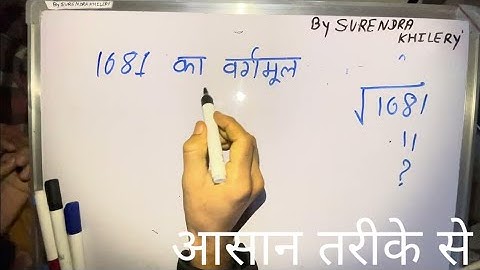 By SURENDRA KHILERY
By SURENDRA
KHILERY
1681 का वर्गमूल
√1681
11
?
आसान तरीके से